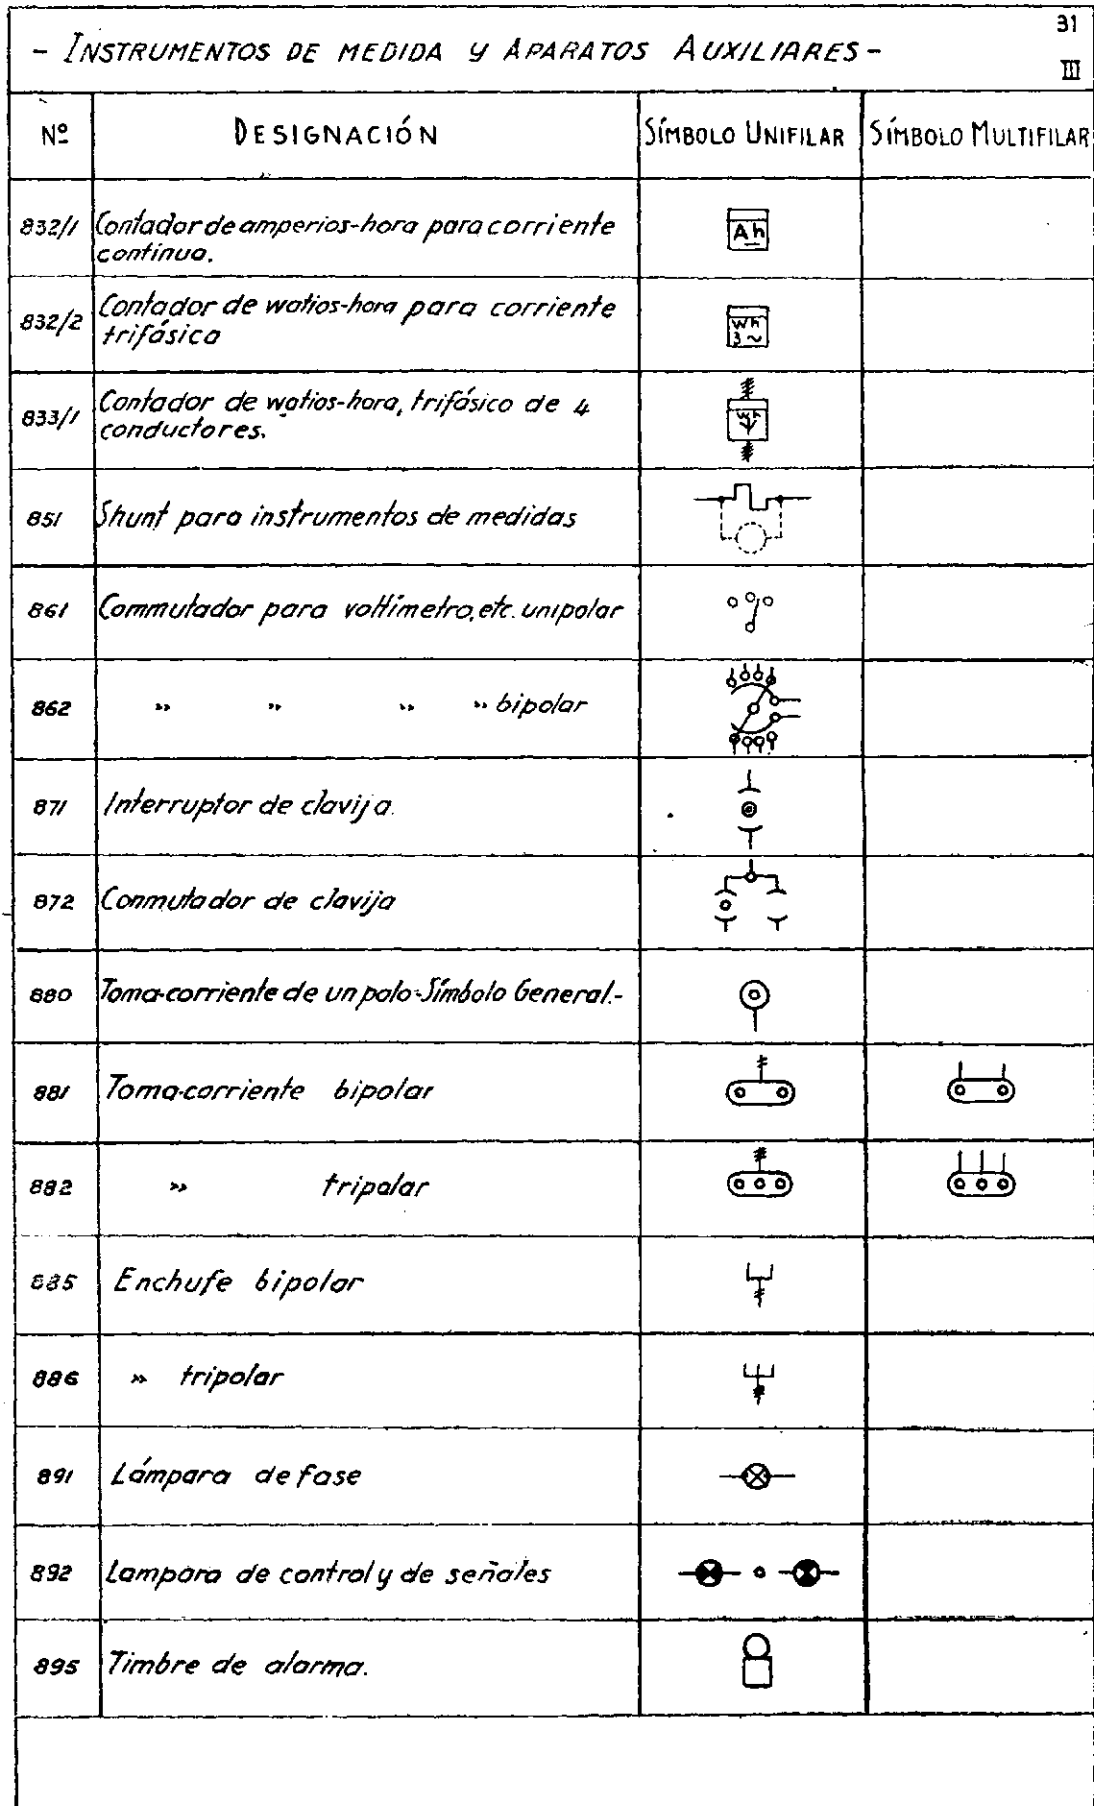 31
- INSTRUMENTOS DE MEDIDA Y APARATOS AUXILIARES -
III
Nº DESIGNACIÓN SÍMBOLO UNIFILAR SÍMBOLO MULTIFILAR
832/1 Contador de amperios-hora para corriente
continua.
Ah
832/2 Contador de watios-hora para corriente
trifásica
Wh
3~
833/1 Contador de watios-hora, trifásico de 4
conductores.
Wh
851 Shunt para instrumentos de medidas
861 Commutador para voltímetro, etc. unipolar
862 " " " " bipolar
871 Interruptor de clavija.
872 Conmutador de clavija
880 Toma-corriente de un polo-Símbolo General.-
881 Toma-corriente bipolar
882 " tripolar
885 Enchufe bipolar
886 " tripolar
891 Lámpara de fase
892 Lampara de control y de señales
895 Timbre de alarma.